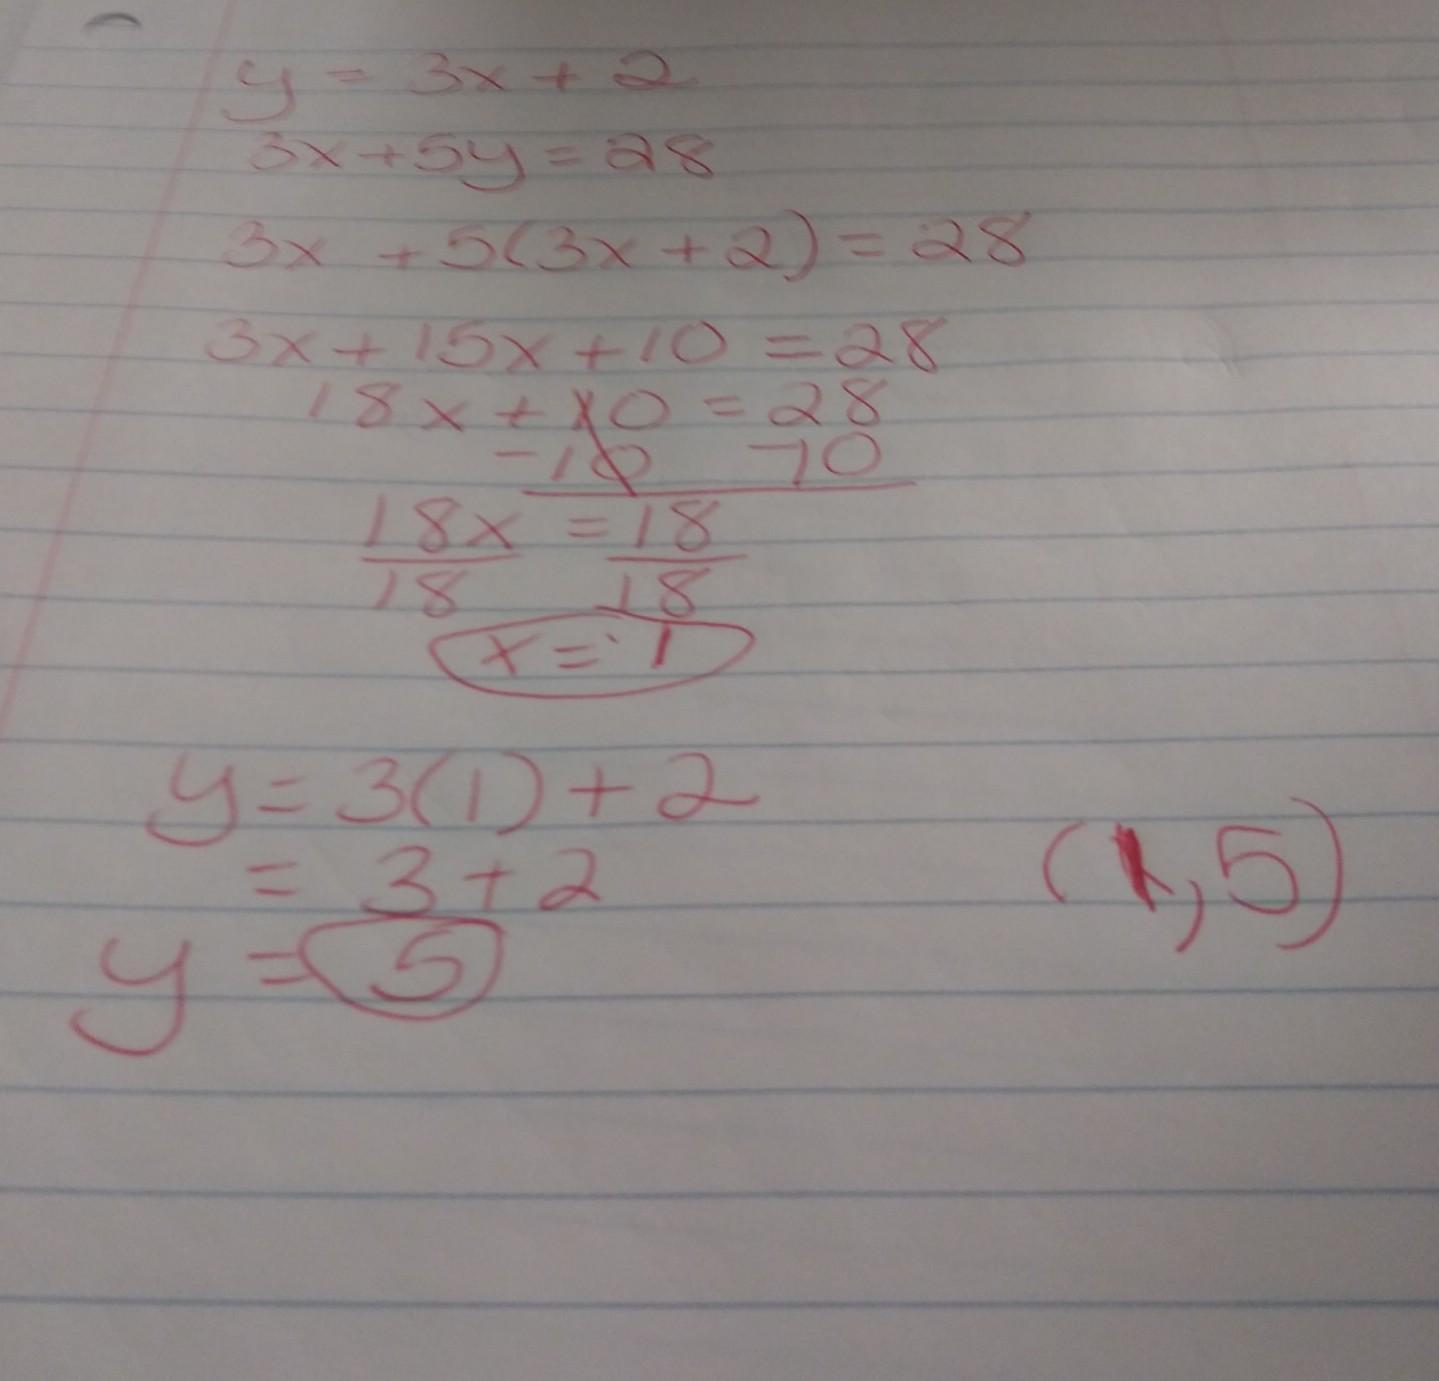 y = 3x + 2
3x + 5y = 28
3x + 5(3x + 2) = 28
3x + 15x + 10 = 28
18x + 10 = 28
-10 -10
18x = 18
18 18
x = 1
y = 3(1) + 2
= 3 + 2
(1, 5)
y = 5